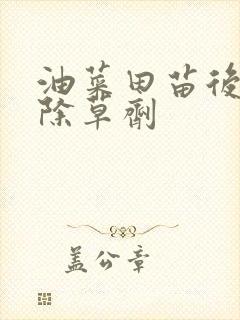 油菜田苗後
除草劑
盖公章